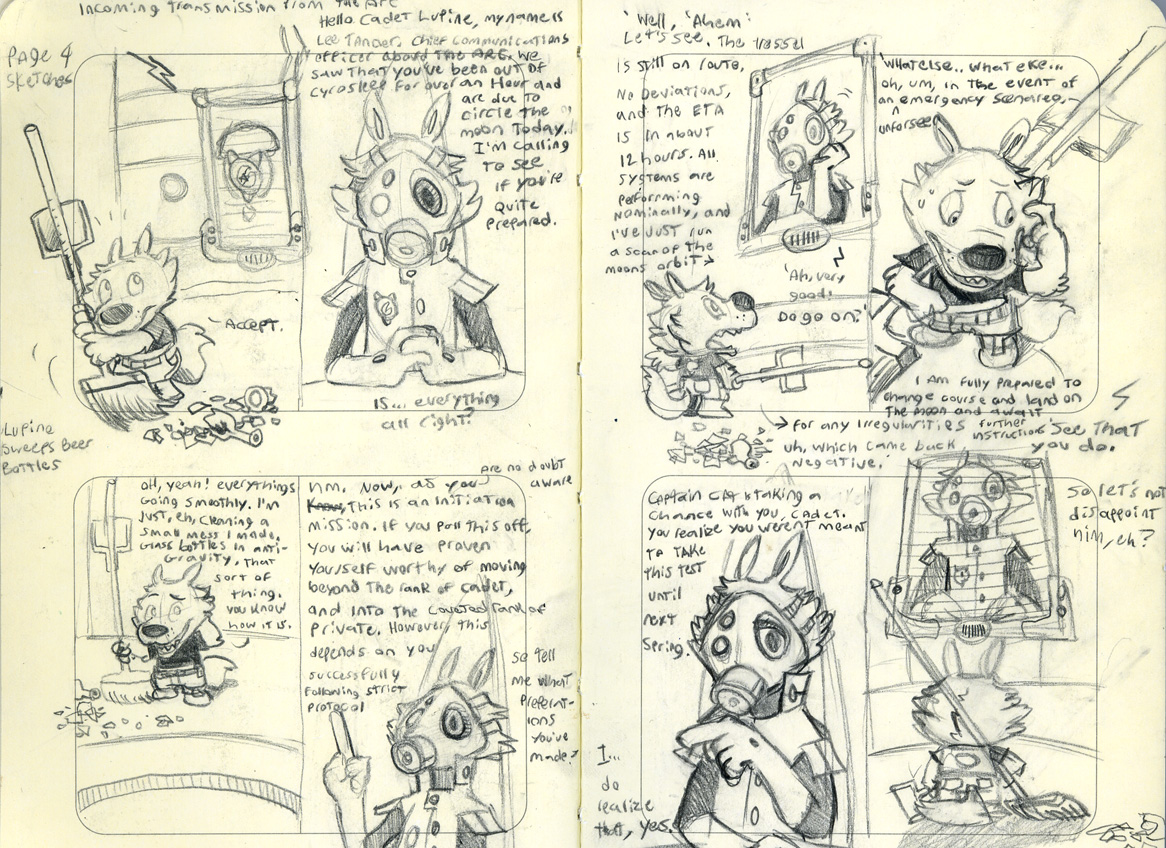 Incoming Transmission from The Arc
Page 4
sketches
Hello Cadet Lupine, my name is
Lee Tander, Chief Communications
officer aboard The ARC. We
saw that you've been out of
cyrosleep for over an Hour and
are due to
circle the
moon Today.
I'm calling
to see
if you're
quite
prepared.
- Accept.
Is... everything
all right?
Lupine
sweeps Beer
Bottles
oh, yeah! everythings
going smoothly. I'm
just, eh, cleaning a
small mess I made.
Glass bottles in anti-
Gravity, that
sort of
thing.
you know
how it is.
are no doubt
aware
hm. Now, as you
Know, This is an initiation
mission. If you pull this off,
you will have proven
yourself worthy of moving
beyond the rank of cadet,
and into the coveted rank of
private. However, this
depends on you
successfully
following strict
protocol
so tell
me what
preperat-
ions
you've
made?
'Well, 'Ahem:
Let's see. The
is still on route,
No Deviations,
and the ETA
is in about
12 hours. All
systems are
performing
nominally, and
I've just run
a scan of the
moons orbit →
'Ah, very
good!
Do go on?'
→ for any irregularities
uh, which came back
negative.
'What else.. what else...
oh, um, in the event of
an emergency scenario, -
n
unforseen
I am fully prepared to
change course and land on
the moon and await
further
instruction.
See that
you do.
Captain Clr is taking a
chance with you, cadet.
you realize you weren't meant
to take
this test
until
next
Spring.
I...
do
realize
that, yes.
So let's not
disappoint
him, eh?